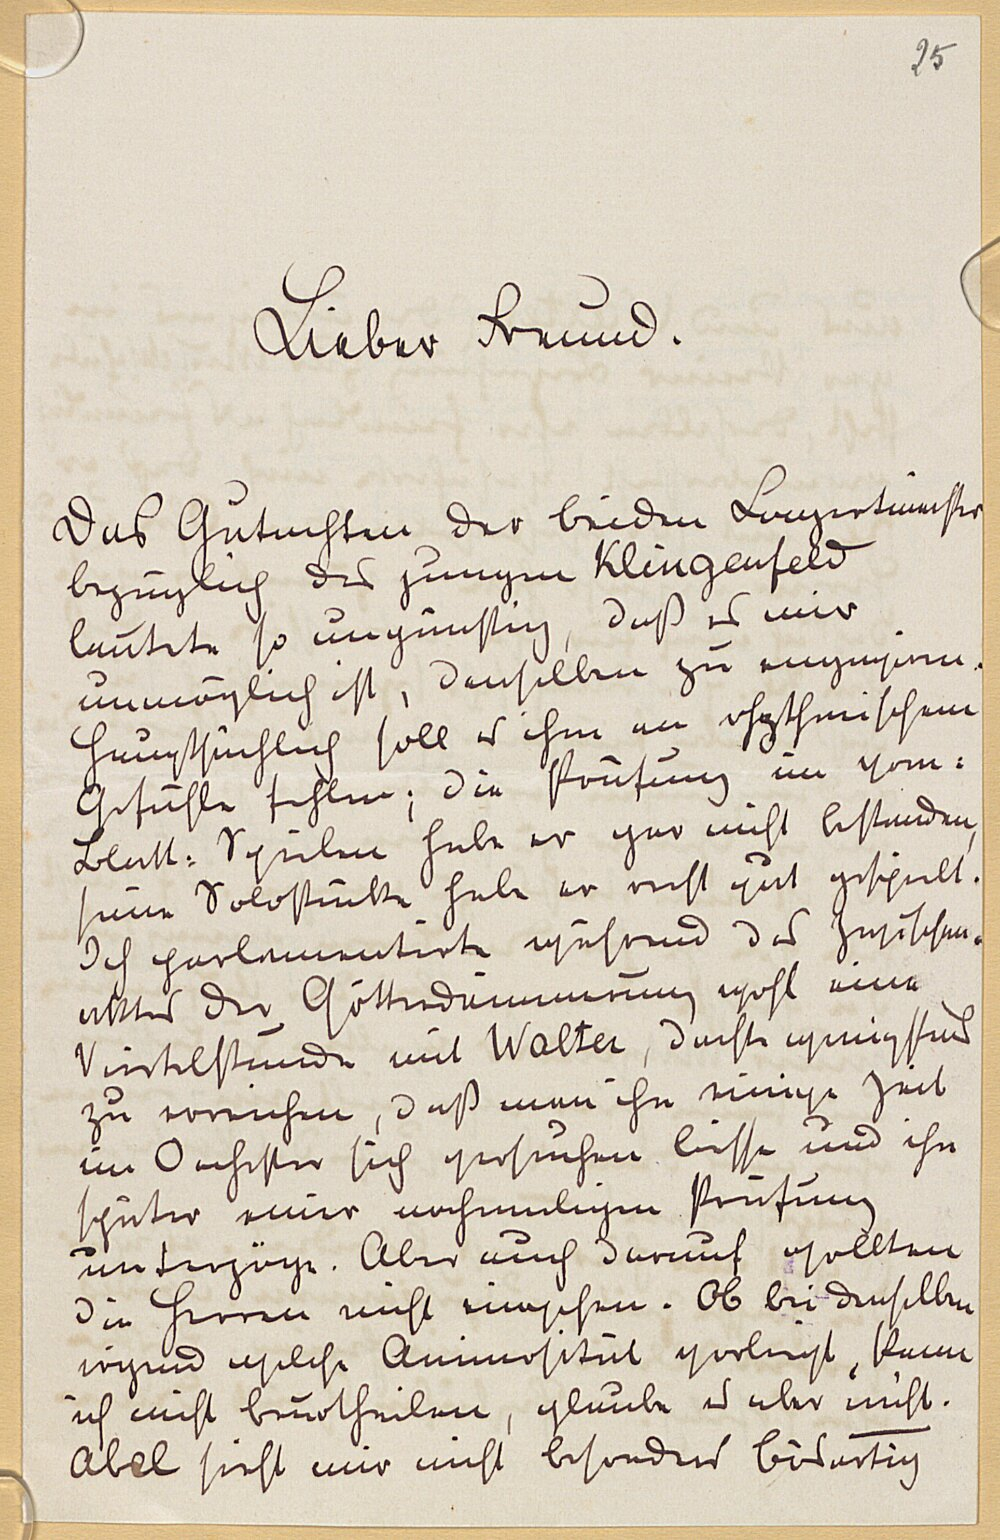 25
Lieber Freund.
Das Gutachten der beiden Konzertmeister
bezüglich des jungen Klingenfeld
lautete so ungünstig, daß es mir
unmöglich ist, denselben zu engagiren.
Hauptsächlich soll es ihm an rhythmischem
Gefühle fehlen; die Prüfung im vom-
Blatt-Spielen habe er gar nicht bestanden,
seine Solostücke habe er recht gut gespielt.
Ich parlamentirte während des Zwischen-
aktes der Götterdämmerung wohl eine
Viertelstunde mit Walter, dachte wenigstens
zu erreichen, daß man ihn einige Zeit
im Orchester sich versuchen liesse und ihn
später einer nochmaligen Prüfung
unterzöge. Aber auch darauf wollten
die Herren nicht eingehen. Ob bei denselben
irgend welche Animosität vorliegt, kann
ich nicht beurtheilen, glaube es aber nicht.
Abel sieht mir nicht besonders bösartig